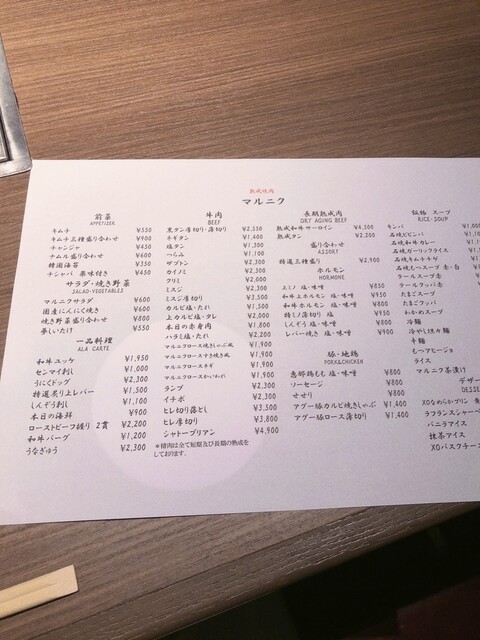 熟成焼肉
マルニク
前菜
APPETIZER
キムチ ¥550
キムチ三種盛り合わせ ¥900
チャンジャ ¥450
ナムル盛り合せ ¥600
韓国海苔 ¥350
チシャバ 薬味付き ¥450
サラダ・焼き野菜
SALAD・VEGETABLES
マルニクサラダ ¥600
国産にんにく焼き ¥600
焼き野菜盛り合わせ ¥800
夢しいたけ ¥550
一品料理
ALA CARTE
和牛ユッケ ¥1,950
センマイ刺し ¥1,000
うにくドッグ ¥2,300
特選炙り上レバー ¥1,500
しんぞう刺し ¥1,100
本日の海鮮
ローストビーフ握り 2貫 ¥2,200
和牛バーグ ¥1,200
うなぎゅう ¥2,300
牛肉
BEEF
黒タン厚切り・薄切り ¥2,550
ネギタン ¥1,400
塩タン ¥1,300
つらみ
ザブトン
カイノミ
フリミ
ミスジ
ミスジ厚切り
カルビ塩・たれ
上カルビ塩・タレ
本日の赤身肉
ハラミ塩・たれ
マルニクロース焼きしゃぶ風 ¥1,900
マルニクロースすき焼き風 ¥1,900
マルニクロースネギ ¥1,900
マルニクロースかいわれ ¥1,900
ランプ ¥2,300
イチボ ¥2,200
ヒレ切り落とし ¥3,500
ヒレ厚切り ¥3,800
シャトーブリアン ¥4,900
*精肉は全て短期及び長期の熟成をしております。
長期熟成肉
DRY AGING BEEF
熟成和牛サーロイン ¥4,500
熟成タン ¥2,300
盛り合わせ
ASSORT
特選三種盛り ¥2,900
ホルモン
HORMONE
ミノ 塩・味噌 ¥850
和牛上ホルモン 塩・味噌 ¥950
和牛ホルモン 塩・味噌
特ミノ切り 塩
しんぞう 塩・味噌 ¥800
レバー焼き 塩・味噌 ¥900
豚・地鶏
PORK&CHICKEN
恵那鶏もも 塩・味噌 ¥800
ソーセージ ¥800
せせり ¥800
アグー豚カルビ焼きしゃぶ ¥1,400
アグー豚ロース薄切り ¥1,400
飯膳 スープ
RICE・SOUP
キンパ
石焼ビビンバ
石焼和牛カレー
石焼ガーリックライス
石焼キムチチゲ
石焼もつスープ 赤・白
テールスープ赤
テールクッパ赤
たまごスープ
たまごクッパ
わかめスープ
冷麺
冷やし坦々麺
辛麺
もつアヒージョ
ライス
マルニク茶漬け
デザー
DESSE
XOなめらかプリン
ラフランスシャーベ
バニラアイス
抹茶アイス
XOバスクチー